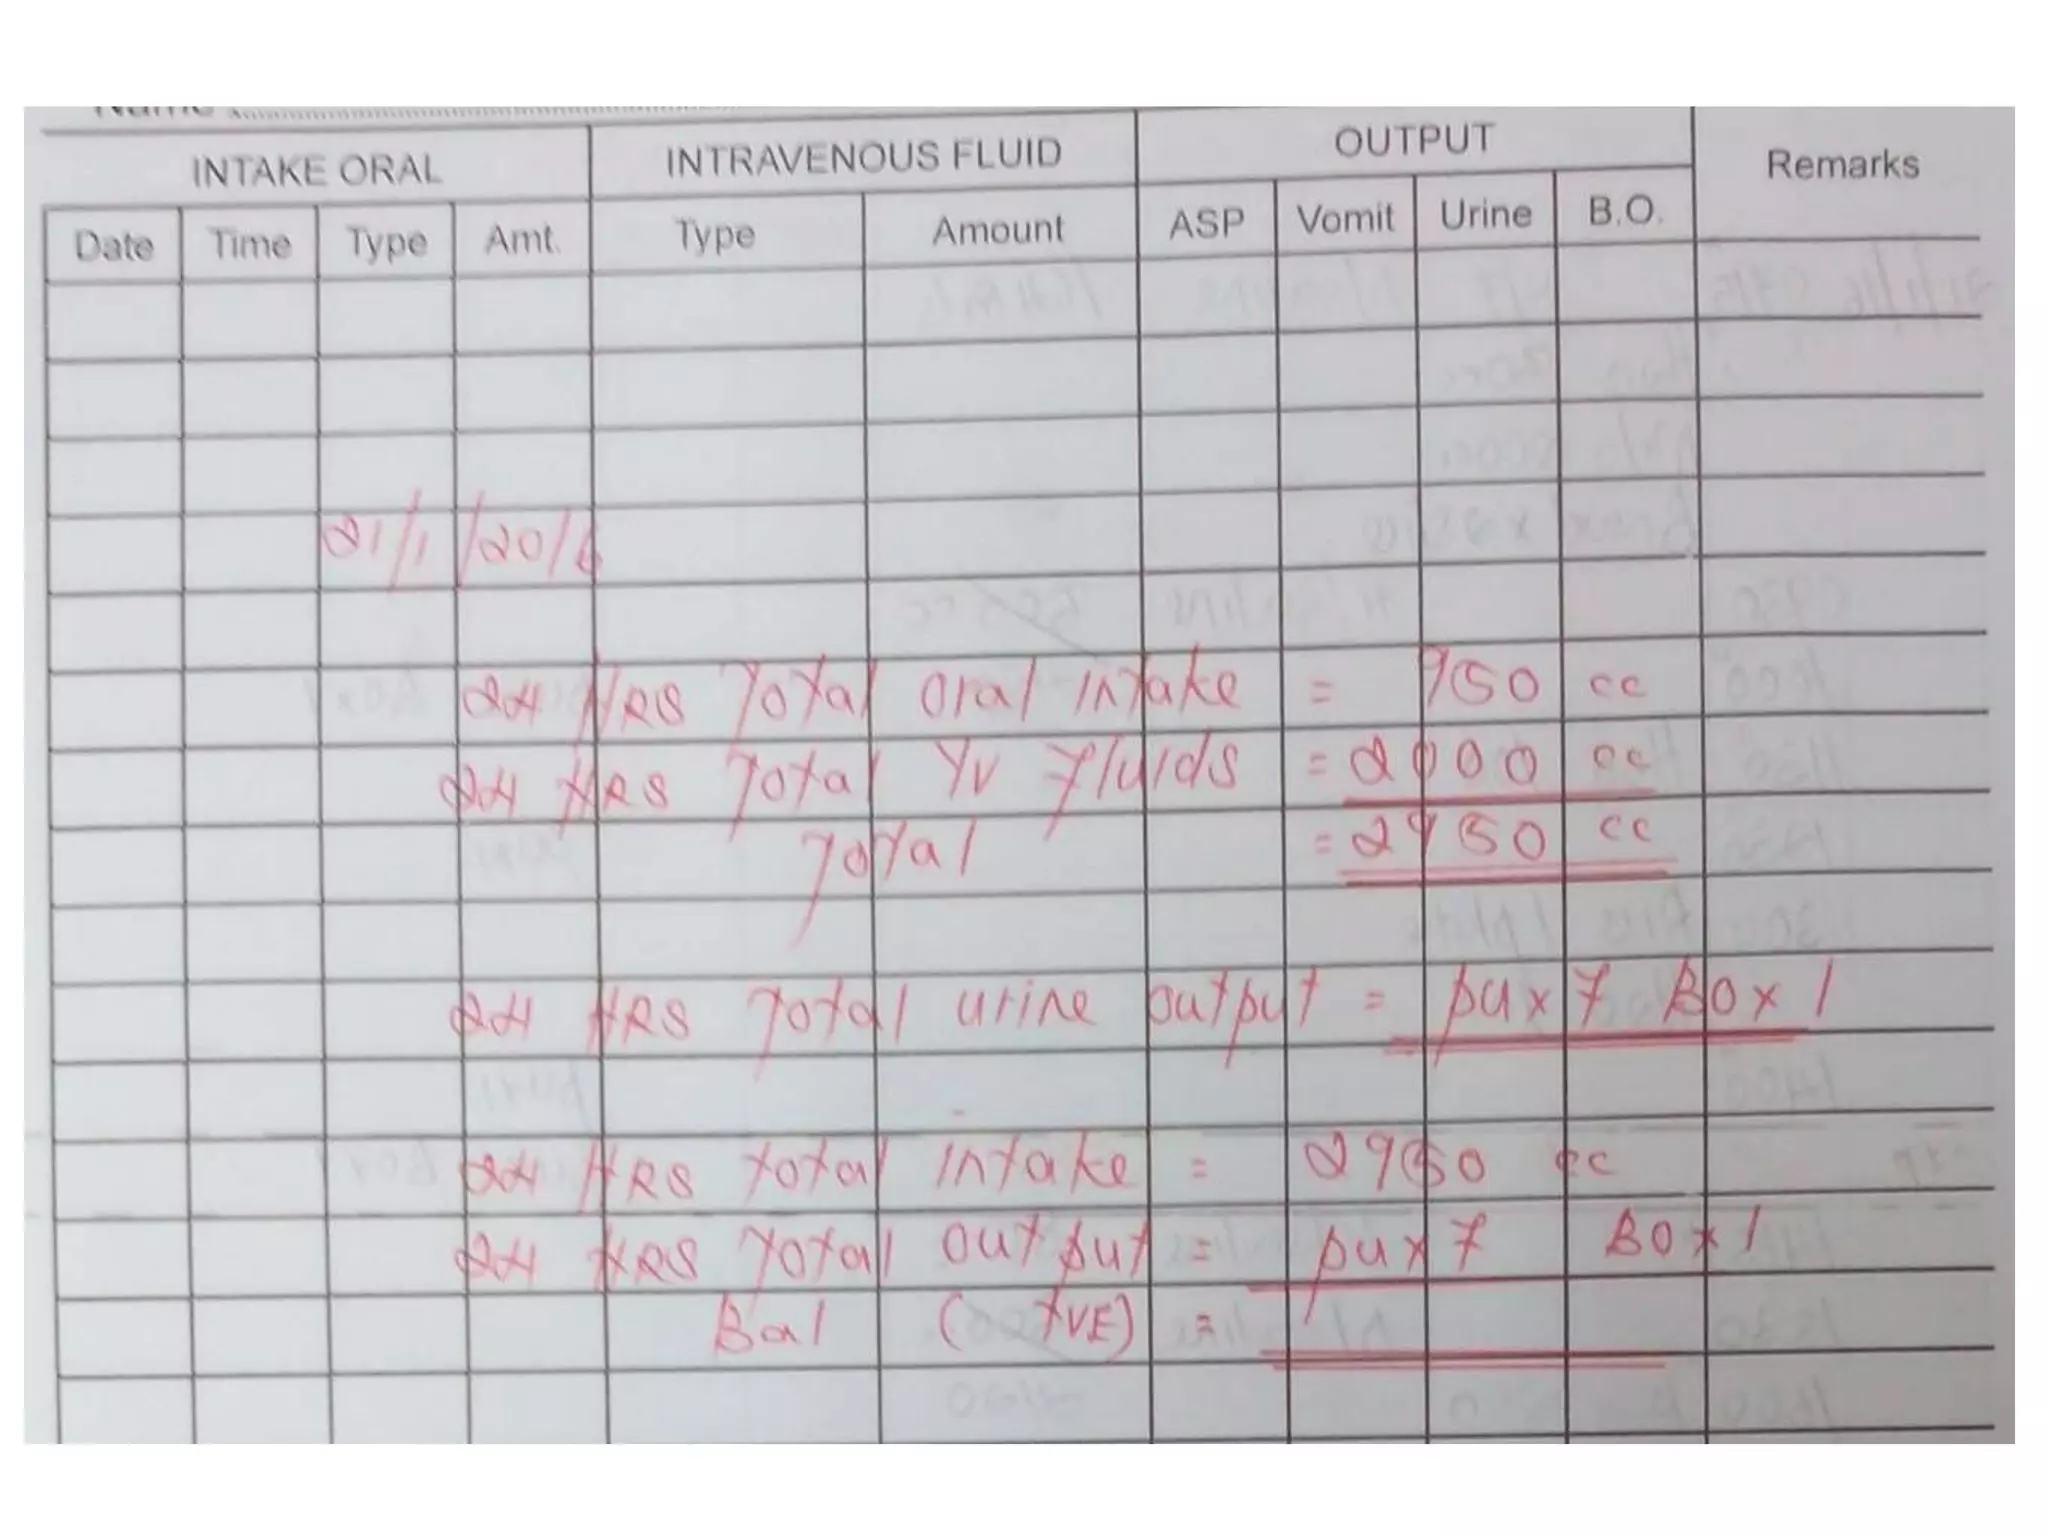 INTAKE ORAL INTRAVENOUS FLUID OUTPUT Remarks
Date Time Type Amt. Type Amount ASP Vomit Urine B.O.
21/1/2016
24 HRS Total Oral Intake = 950 cc
24 HRS Total IV Fluids = 2000 cc
Total = 2950 cc
24 HRS Total urine output = pu x 7 BO x 1
24 HRS total intake = 2950 cc
24 HRS Total output = pu x 7 BO x 1
Bal (+VE) =